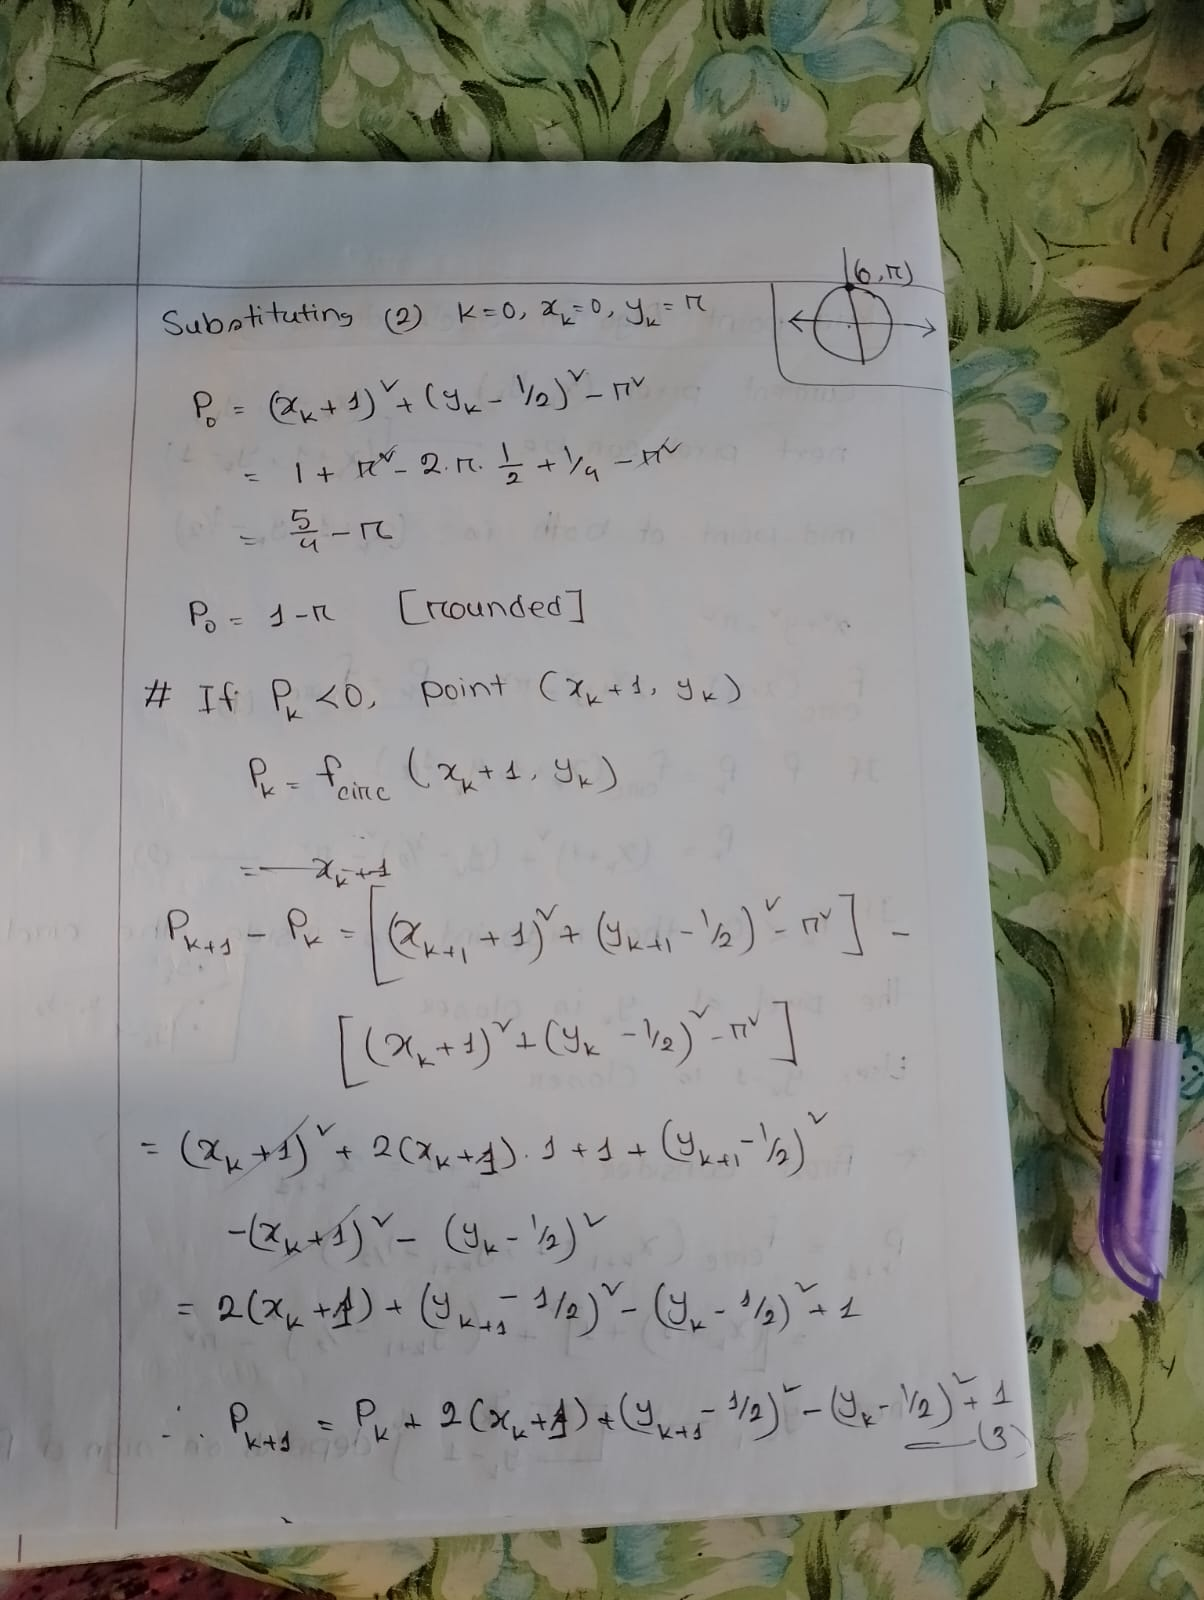 (0,r)
Substituting (2) K=0, x_k=0, y_k=r
P_0 = (x_k+1)² + (y_k - 1/2)² - r²
= 1 + r² - 2.r. 1/2 + 1/4 - r²
= 5/4 - r
P_0 = 1-r [rounded]
# If P_k <0, point (x_k+1, y_k)
P_k = f_circ (x_k+1, y_k)
= x_k+1
P_k+1 - P_k = [(x_k+1 + 1)² + (y_k+1 - 1/2)² - r²] -
[(x_k+1)² + (y_k - 1/2)² - r²]
= (x_k+1)² + 2(x_k+1).1 + 1 + (y_k+1 - 1/2)²
-(x_k+1)² - (y_k - 1/2)²
= 2(x_k+1) + (y_k+1 - 1/2)² - (y_k - 1/2)² + 1
∴ P_k+1 = P_k + 2(x_k+1) + (y_k+1 - 1/2)² - (y_k - 1/2)² + 1
—(3)